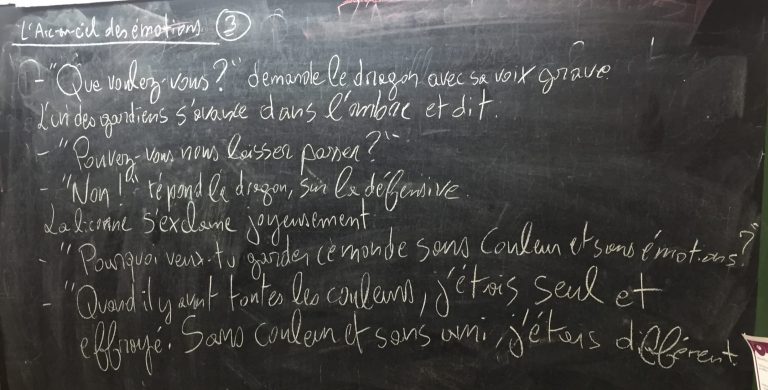 L'Arc-en-ciel des émotions 3
- "Que voulez-vous?" demande le dragon avec sa voix grave.
L'un des gardiens s'avance dans l'ombre et dit.
- "Pouvez-vous nous laisser passer?"
- "Non!" répond le dragon, sur la défensive.
La licorne s'exclame joyeusement.
- "Pourquoi veux-tu garder ce monde sans couleur et sans émotions?"
- "Quand il y avait toutes les couleurs, j'étais seul et
effrayé. Sans couleur et sans ami, j'étais différent.